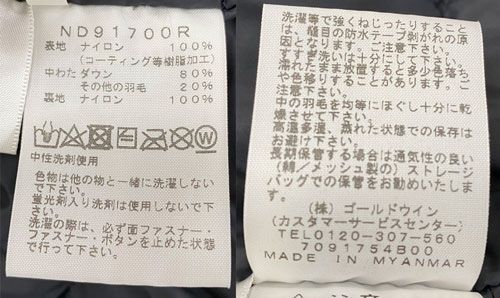 ND91700R
表地 ナイロン 100%
(コーティング等樹脂加工)
中わた ダウン 80%
その他の羽毛 20%
裏地 ナイロン 100%
中性洗剤使用
色物は他の物と一緒に洗濯しない
で下さい。
蛍光剤入り洗剤は使用しないで下
さい。
洗濯の際は、必ず面ファスナー・
ファスナー・ボタンを止めた状態
で行って下さい。
洗濯等で強くねじったりすること
は、縫目の防水テープ剥がれの原
因となります。ご注意下さい。
すすぎ洗いは十分にして下さい。
濡れたまま放置すると多少色落ち
や色移りすることがあります。ご
注意下さい。
中の羽毛を均等にほぐし十分に乾
燥させて下さい。
高温多湿、蒸れた状態での保存は
お避け下さい。
長期保管する場合は通気性の良い
(綿/メッシュ製の)ストレージ
バッグでの保管をお勧めいたしま
す。
(株)ゴールドウイン
(カスタマーサービスセンター)
TEL0120-307-560
7091754B00
MADE IN MYANMAR